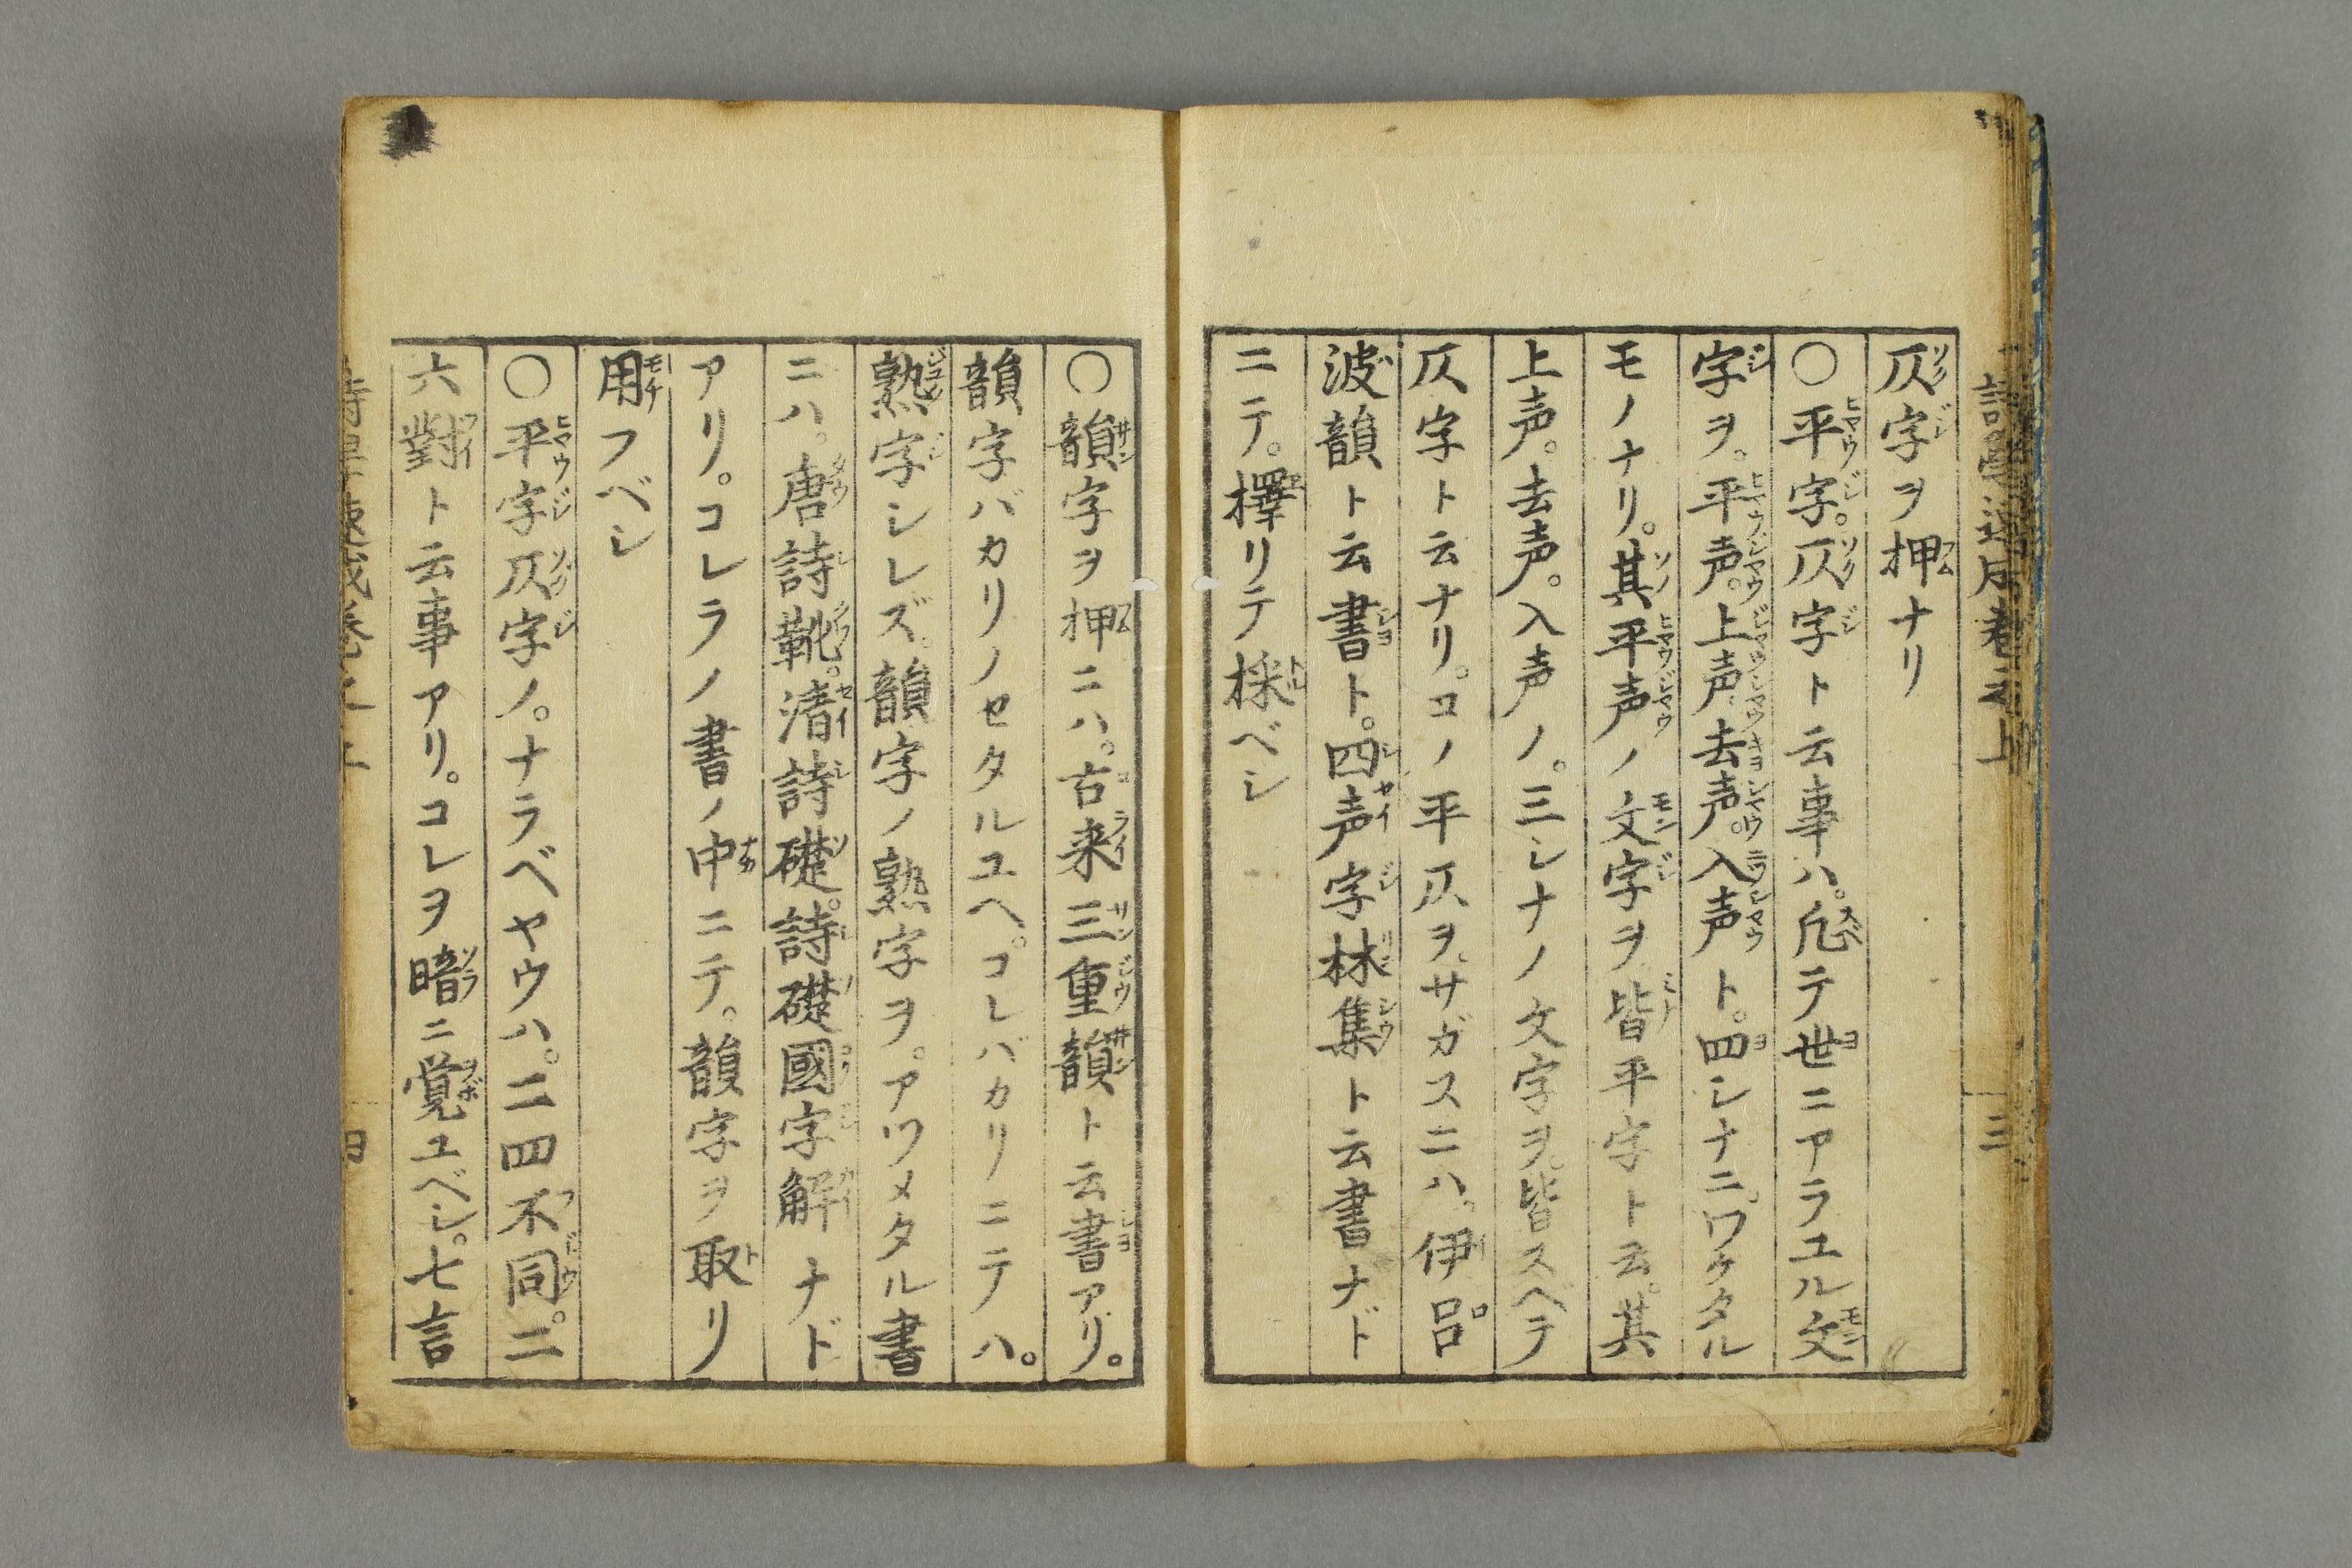 仄字ヲ押ナリ
〇平字。仄字ト云事ハ。凡テ世ニアラユル文
字ヲ。平声。上声。去声。入声ト。四シナニ。ワケタル
モノナリ。其平声ノ文字ヲ皆平字ト云。其
上声。去声。入声ノ。三シナノ文字ヲ。皆スベテ
仄字ト云ナリ。コノ平仄ヲ。サガスニハ。伊呂
波韻ト云書ト。四声字林集ト云書ナド
ニテ。擇リテ採ベシ
〇韻字ヲ押ニハ。古来三重韻ト云書アリ。
韻字バカリノセタルユヘ。コレバカリニテハ。
熟字シレズ。韻字ノ熟字ヲ。アツメタル書
ニハ。唐詩靴。清詩礎。詩礎國字解ナド
アリ。コレラノ書ノ中ニテ。韻字ヲ取リ
用フベシ
〇平字仄字ノ。ナラベヤウハ。二四不同。二
六對ト云事アリ。コレヲ暗ニ覚ユベシ。七言